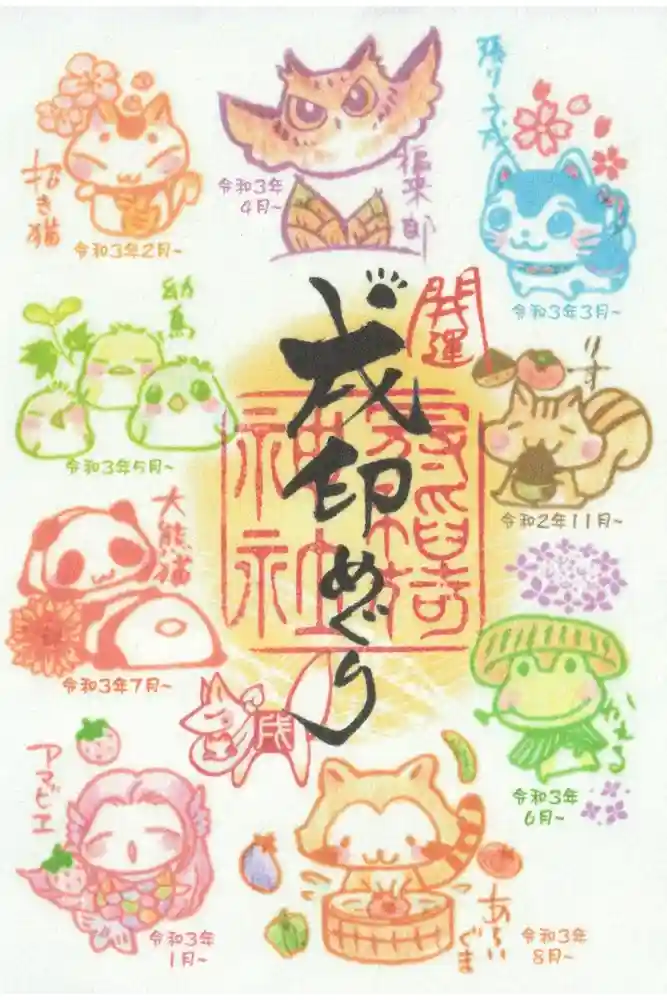 招き猫
令和3年2月~
令和3年
4月~
福来郎
張り子戌
令和3年3月~
開運
戌印めぐり
神社
幼鳥
令和3年5月~
りす
令和2年11月~
大熊猫
令和3年7月~
かえる
令和3年
6月~
戌
アマビエ
令和3年
1月~
あらい
ぐま
令和3年
8月~